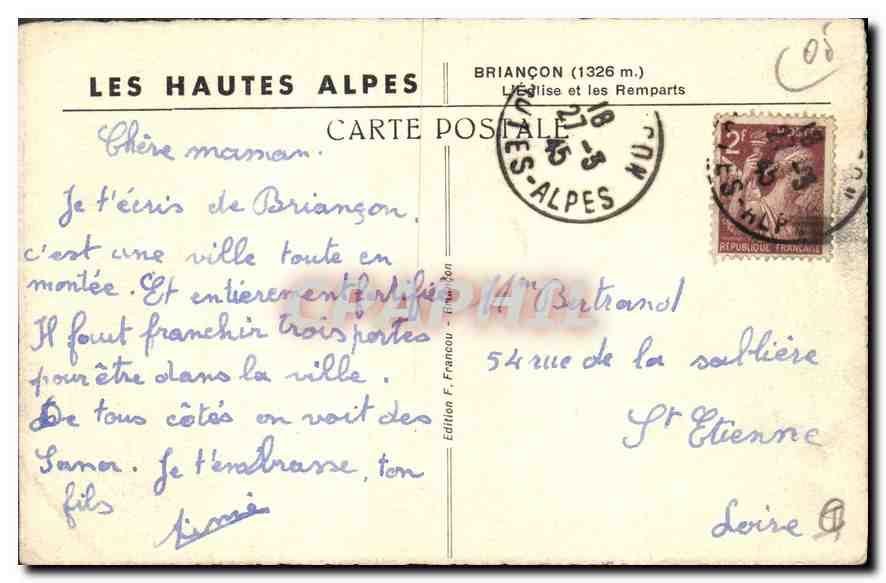 LES HAUTES ALPES
BRIANÇON (1326 m.)
L'Église et les Remparts
CARTE POSTALE
Chère maman.
Je t'écris de Briançon,
c'est une ville toute en
montée. Et entièrement fortifié
Il faut franchir trois portes
pour être dans la ville.
De tous côtés on voit des
Je t'embrasse, ton
fils
Aimé
Edition F. Francou - Briançon
CHAPHIL
Mm Bertrand
54 rue de la sablière
St Etienne
Loire
05
18
27-3
45
UTES-ALPES
2f
POSTES
RÉPUBLIQUE FRANÇAISE
18
-3
45
TES-ALP